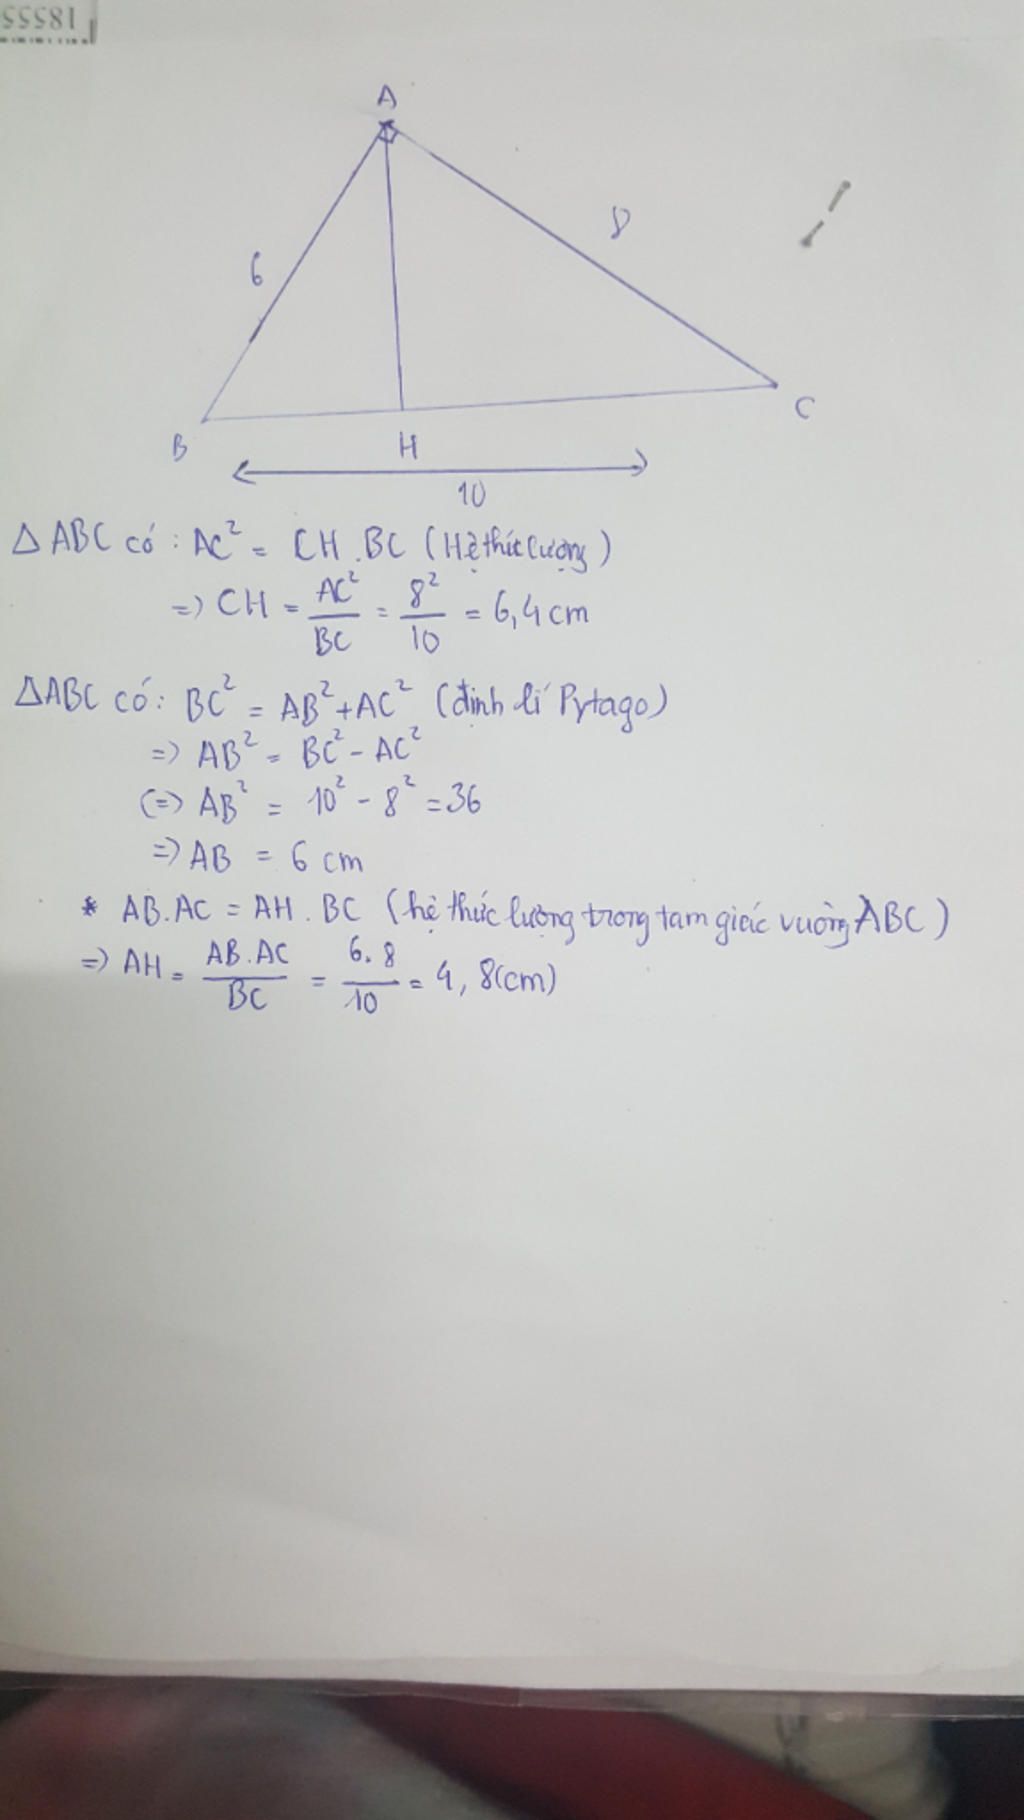 18555
A
6
8
B
H
C
10
△ABC có: AC² = CH.BC (Hệ thức lượng)
=> CH = AC²/BC = 8²/10 = 6,4cm
△ABC có: BC² = AB²+AC² (định lí Pytago)
=> AB² = BC² - AC²
(=> AB² = 10² - 8² = 36
=> AB = 6 cm
* AB.AC = AH.BC (hệ thức lượng trong tam giác vuông ABC)
=> AH = AB.AC/BC = 6.8/10 = 4,8(cm)